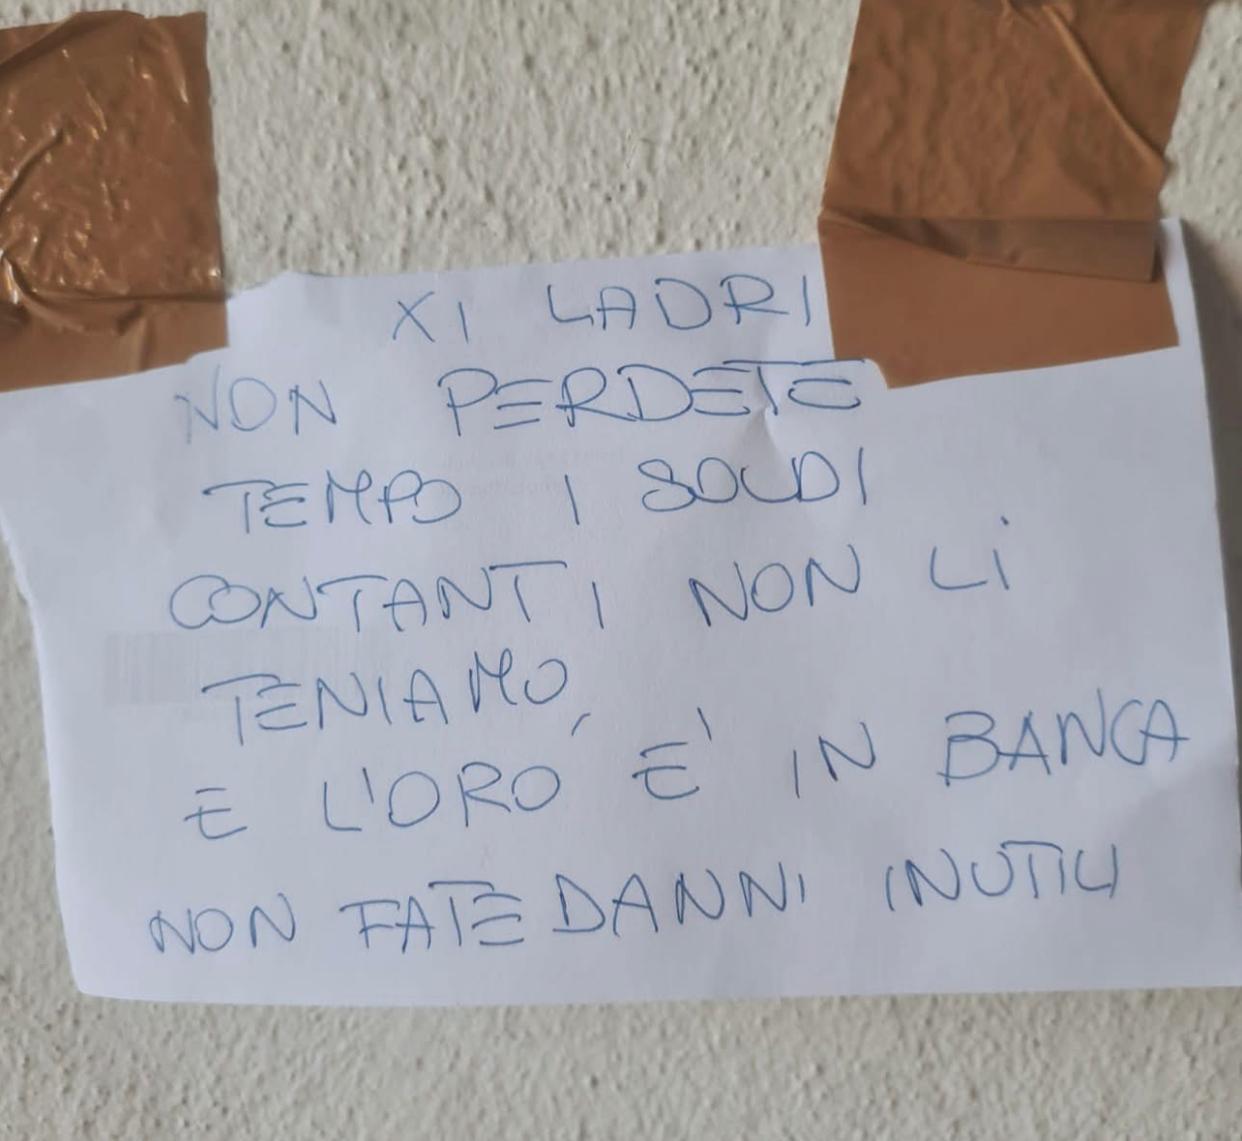 XI LADRI
NON PERDETE
TEMPO I SOLDI
CONTANTI NON Li
TENIAMO,
E L'ORO E' IN BANCA
NON FATE DANNI INUTILI